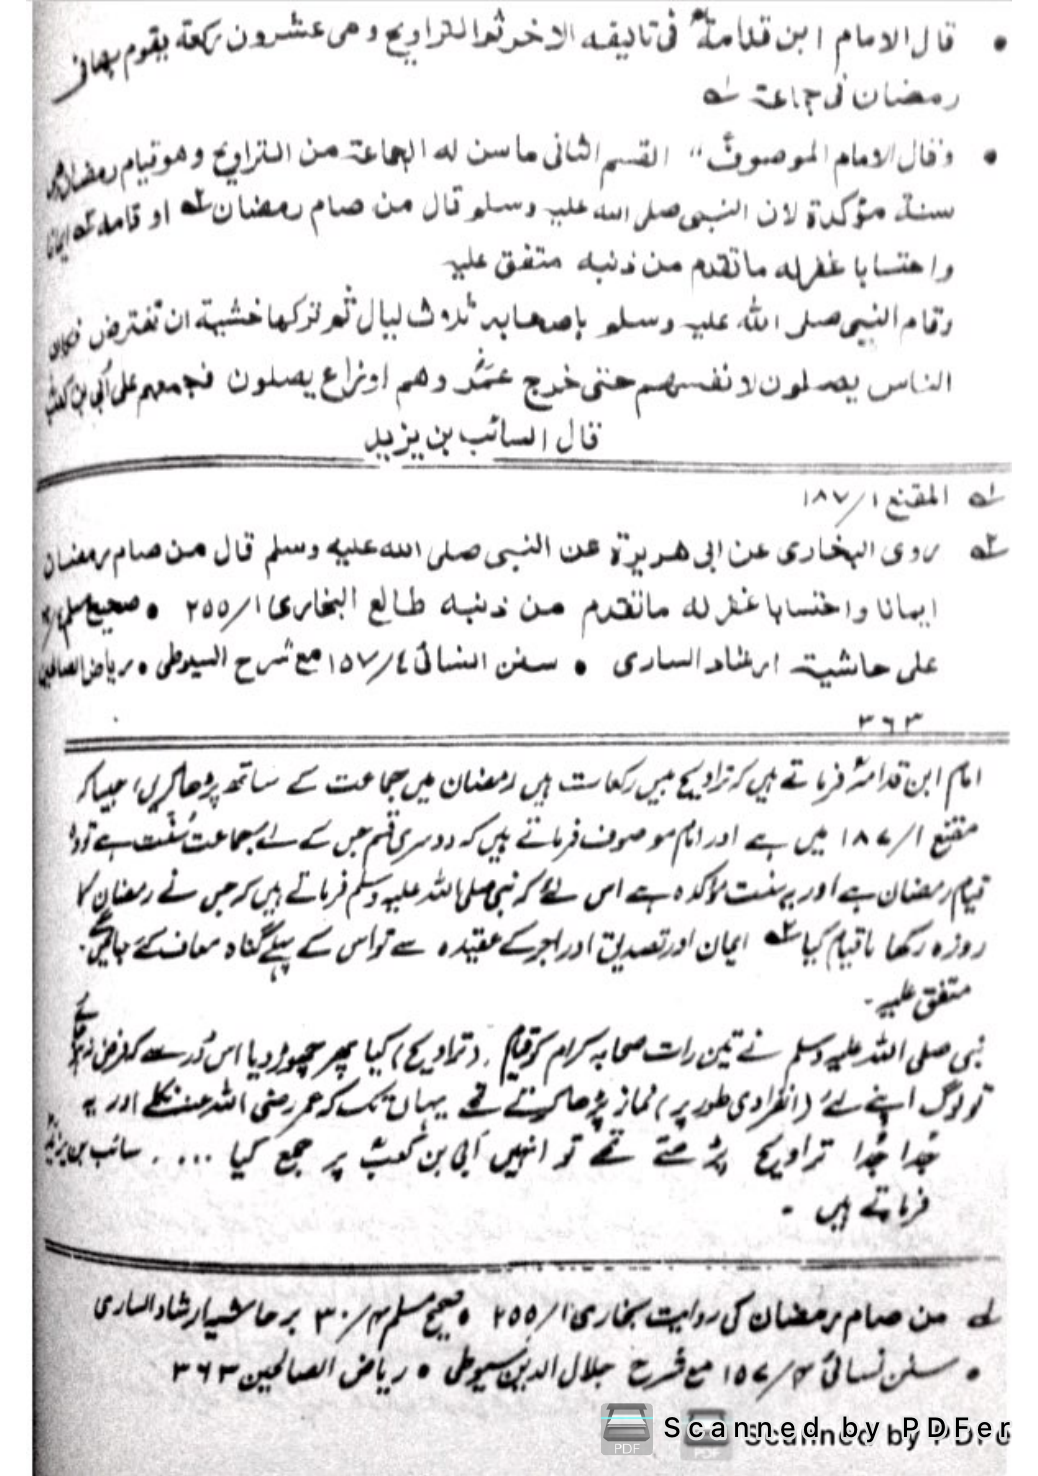 • قال الامام ابن قدامةؒ فی تالیفه الاخر ثم التراویح وهی عشرون رکعة یقوم بها فی
رمضان فی جماعة ۱ه
• وقال الامام الموصوفؒ " القسم الثانی ماسن له الجماعة من التراویح وهو قیام رمضان
سنة مؤکدة لان النبی صلی الله علیه وسلم قال من صام رمضان ۲ه او قامه ایمانا
واحتسابا غفرله ماتقدم من ذنبه متفق علیه
وقام النبی صلی الله علیه وسلم باصحابه ثلاث لیال ثم ترکها خشیة ان تفترض فکان
الناس یصلون لانفسهم حتی خرج عمرؓ وهم اوزاع یصلون فجمعهم علی أبی بن کعبؓ
قال السائب بن یزید
۱ه المقنع ۱/۱۸۷
۲ه روی البخاری عن ابی هریرة عن النبی صلی الله علیه وسلم قال من صام رمضان
ایمانا واحتسابا غفر له ماتقدم من ذنبه طالع البخاری ۱/۲۵۵ • صحیح مسلم
علی حاشیة ارشاد الساری • سنن النسائی ٤/۱۵۷ مع شرح السیوطی • ریاض الصالحین
۳۶۳
امام ابن قدامہؒ فرماتے ہیں کہ تراویح بیس رکعات ہیں رمضان میں جماعت کے ساتھ پڑھا کریں، جیسا کہ
مقنع ۱/۱۸۷ میں ہے اور امام موصوف فرماتے ہیں کہ دوسری قسم جس کے لئے جماعت سُنّت ہے تو وہ
قیام رمضان ہے اور یہ سنت مؤکدہ ہے اس لئے کہ نبی صلی اللہ علیہ وسلم فرماتے ہیں کہ جس نے رمضان کا
روزہ رکھا یا قیام کیا ایمان اور تصدیق اور اجر کے عقیدہ سے تو اس کے پہلے گناہ معاف کئے جائیں گے۔
متفق علیہ۔
نبی صلی اللہ علیہ وسلم نے تین رات صحابہ کرام کو قیام (تراویح) کیا پھر چھوڑ دیا اس ڈر سے کہ فرض نہ ہو جائے
تو لوگ اپنے لئے (انفرادی طور پر) نماز پڑھا کرتے تھے یہاں تک کہ عمر رضی اللہ عنہ نکلے اور یہ
جُدا جُدا تراویح پڑھتے تھے تو انہیں اُبی بن کعبؓ پر جمع کیا .... سائب بن یزیدؓ
فرماتے ہیں ۔
۱ه من صام رمضان کی روایت بخاری ۱/۲۵۵ • صحیح مسلم ۴/۳۰ بر حاشیہ ارشاد الساری
• سنن نسائی ۴/۱۵۷ مع شرح جلال الدین سیوطی • ریاض الصالحین ۳۶۳
PDF Scanned by PDFer
Scanned by PDFe